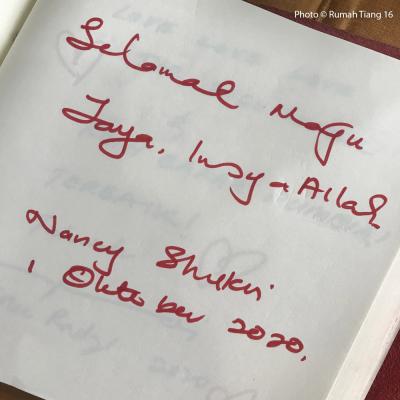 Photo © Rumah Tiang 16
Selamat Maju
Jaya, Insya Allah
Nancy Shukri
1 Oktober 2020.